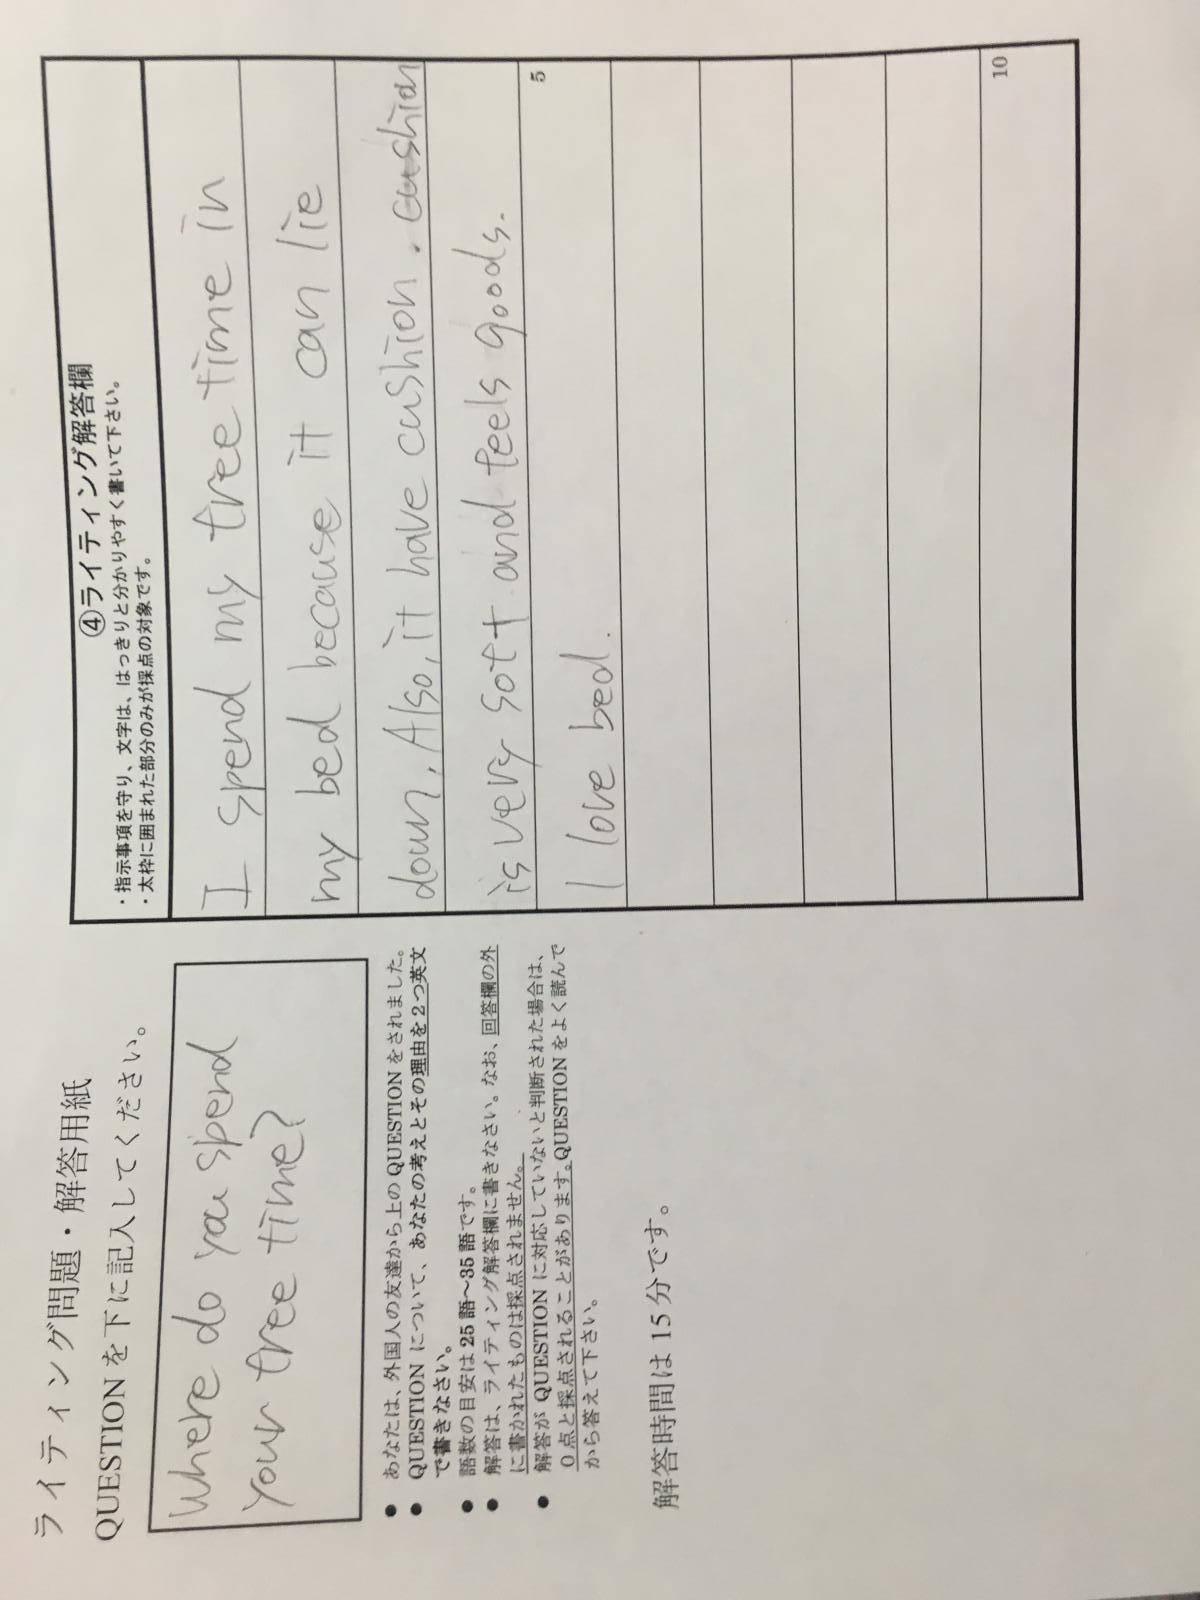 ライティング問題・解答用紙
QUESTIONを下に記入してください。
Where do you spend
your free time?
● あなたは、外国人の友達から上のQUESTIONをされました。
● QUESTIONについて、あなたの考えとその理由を2つ英文
で書きなさい。
● 語数の目安は25語～35語です。
● 解答は、ライティング解答欄に書きなさい。なお、回答欄の外
に書かれたものは採点されません。
● 解答がQUESTIONに対応していないと判断された場合は、
0点と採点されることがあります。QUESTIONをよく読んで
から答えて下さい。
解答時間は15分です。
④ライティング解答欄
・指示事項を守り、文字は、はっきりと分かりやすく書いて下さい。
・太枠に囲まれた部分のみが採点の対象です。
I spend my free time in
my bed because it can lie
down. Also, it have cushion. cushion
is very soft and feels goods.
5
I love bed.
10